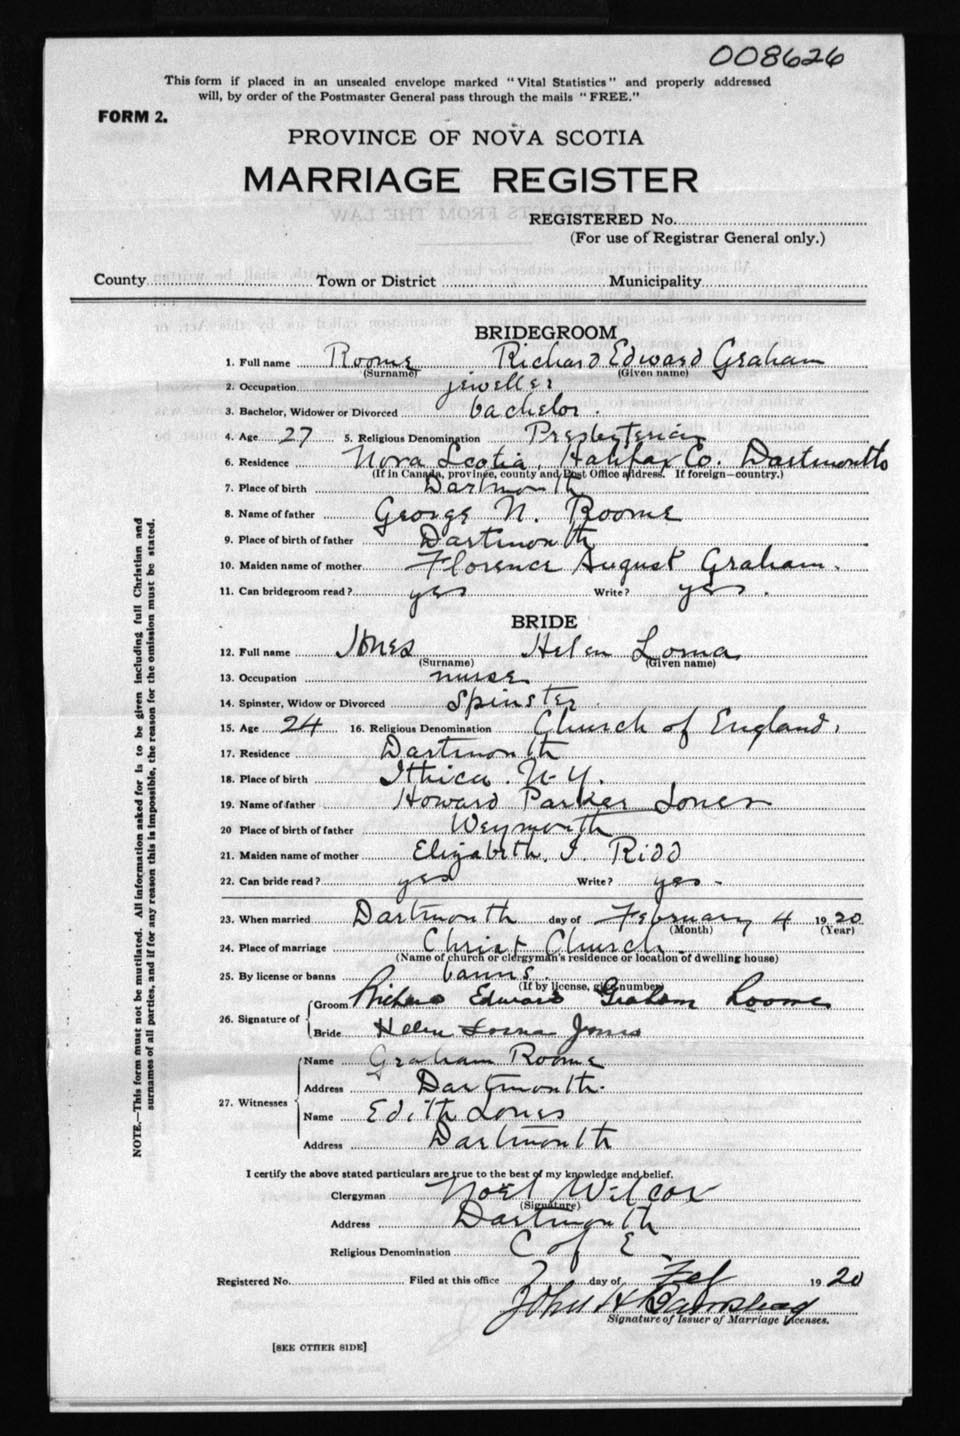 008626
This form if placed in an unsealed envelope marked "Vital Statistics" and properly addressed
will, by order of the Postmaster General pass through the mails "FREE."
FORM 2.
PROVINCE OF NOVA SCOTIA
MARRIAGE REGISTER
EXTRACTS FROM THE LAW
REGISTERED No.
(For use of Registrar General only.)
County Town or District Municipality
BRIDEGROOM
1. Full name Roome Richard Edward Graham
(Surname) (Given name)
2. Occupation jeweller
3. Bachelor, Widower or Divorced bachelor.
4. Age 27 5. Religious Denomination Presbyterian
6. Residence Nova Scotia, Halifax Co. Dartmouth
(If in Canada, province, county and Post Office address. If foreign—country.)
7. Place of birth Dartmouth
8. Name of father George N. Roome
9. Place of birth of father Dartmouth
10. Maiden name of mother Florence August Graham.
11. Can bridegroom read? yes Write? yes.
BRIDE
12. Full name Jones Helen Lorna
(Surname) (Given name)
13. Occupation nurse
14. Spinster, Widow or Divorced Spinster.
15. Age 24 16. Religious Denomination Church of England.
17. Residence Dartmouth
18. Place of birth Ithica. N-Y.
19. Name of father Howard Parker Jones
20 Place of birth of father Weymouth
21. Maiden name of mother Elizabeth. I. Ridd
22. Can bride read? yes Write? yes-
23. When married Dartmouth day of February 4 1920
(Month) (Year)
24. Place of marriage Christ Church.
(Name of church or clergyman's residence or location of dwelling house)
25. By license or banns banns.
(If by license, give number)
26. Signature of Groom Richard Edward Graham Roome
Bride Helen Lorna Jones
27. Witnesses Name Graham Roome
Address Dartmouth.
Name Edith Jones
Address Dartmouth
I certify the above stated particulars are true to the best of my knowledge and belief.
Clergyman Noel Wilcox
(Signature)
Address Dartmouth
Religious Denomination C of E
Registered No. Filed at this office 7 day of Feb 1920
John H
Signature of Issuer of Marriage Licenses.
[SEE OTHER SIDE]
NOTE.—This form must not be mutilated. All information asked for is to be given including full Christian and
surnames of all parties, and if for any reason this is impossible, the reason for the omission must be stated.